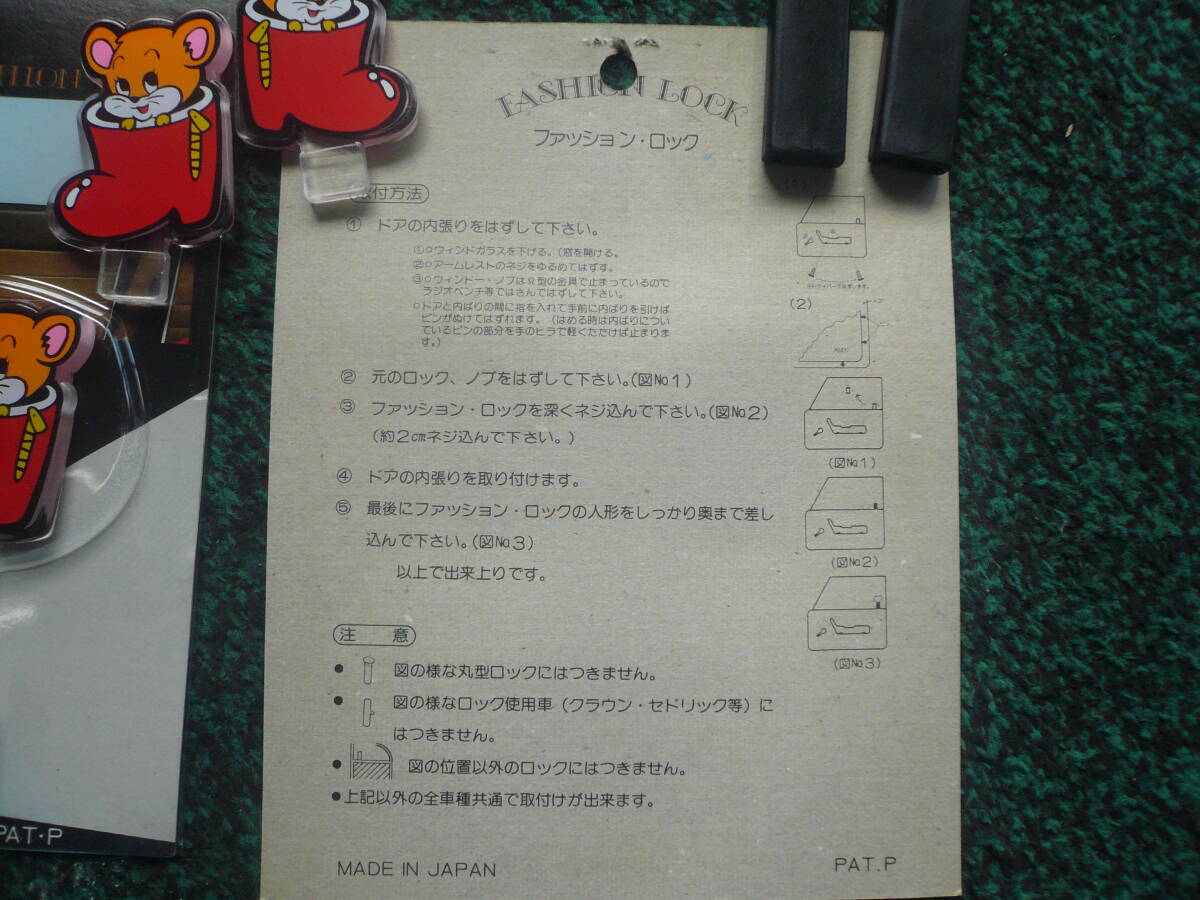 FASHION LOCK
ファッション・ロック
付方法
① ドアの内張りをはずして下さい。
①○ウィンドガラスを下げる。(窓を開ける。
②○アームレストのネジをゆるめてはずす。
③○ウィンドー・ノブはΩ型の金具で止まっているので
ラジオペンチ等ではさんではずして下さい。
○ドアと内ばりの間に指を入れて手前に内ばりを引けば
ピンがぬけてはずれます。(はめる時は内ばりについ
ているピンの部分を手のヒラで軽くたたけば止まりま
す。)
② 元のロック、ノブをはずして下さい。(図No.1)
③ ファッション・ロックを深くネジ込んで下さい。(図No.2)
(約2cmネジ込んで下さい。)
④ ドアの内張りを取り付けます。
⑤ 最後にファッション・ロックの人形をしっかり奥まで差し
込んで下さい。(図No.3)
以上で出来上りです。
(2)
(図No.1)
(図No.2)
(図No.3)
注 意
● 図の様な丸型ロックにはつきません。
● 図の様なロック使用車(クラウン・セドリック等)に
はつきません。
● 図の位置以外のロックにはつきません。
●上記以外の全車種共通で取付けが出来ます。
MADE IN JAPAN
PAT.P
PAT・P